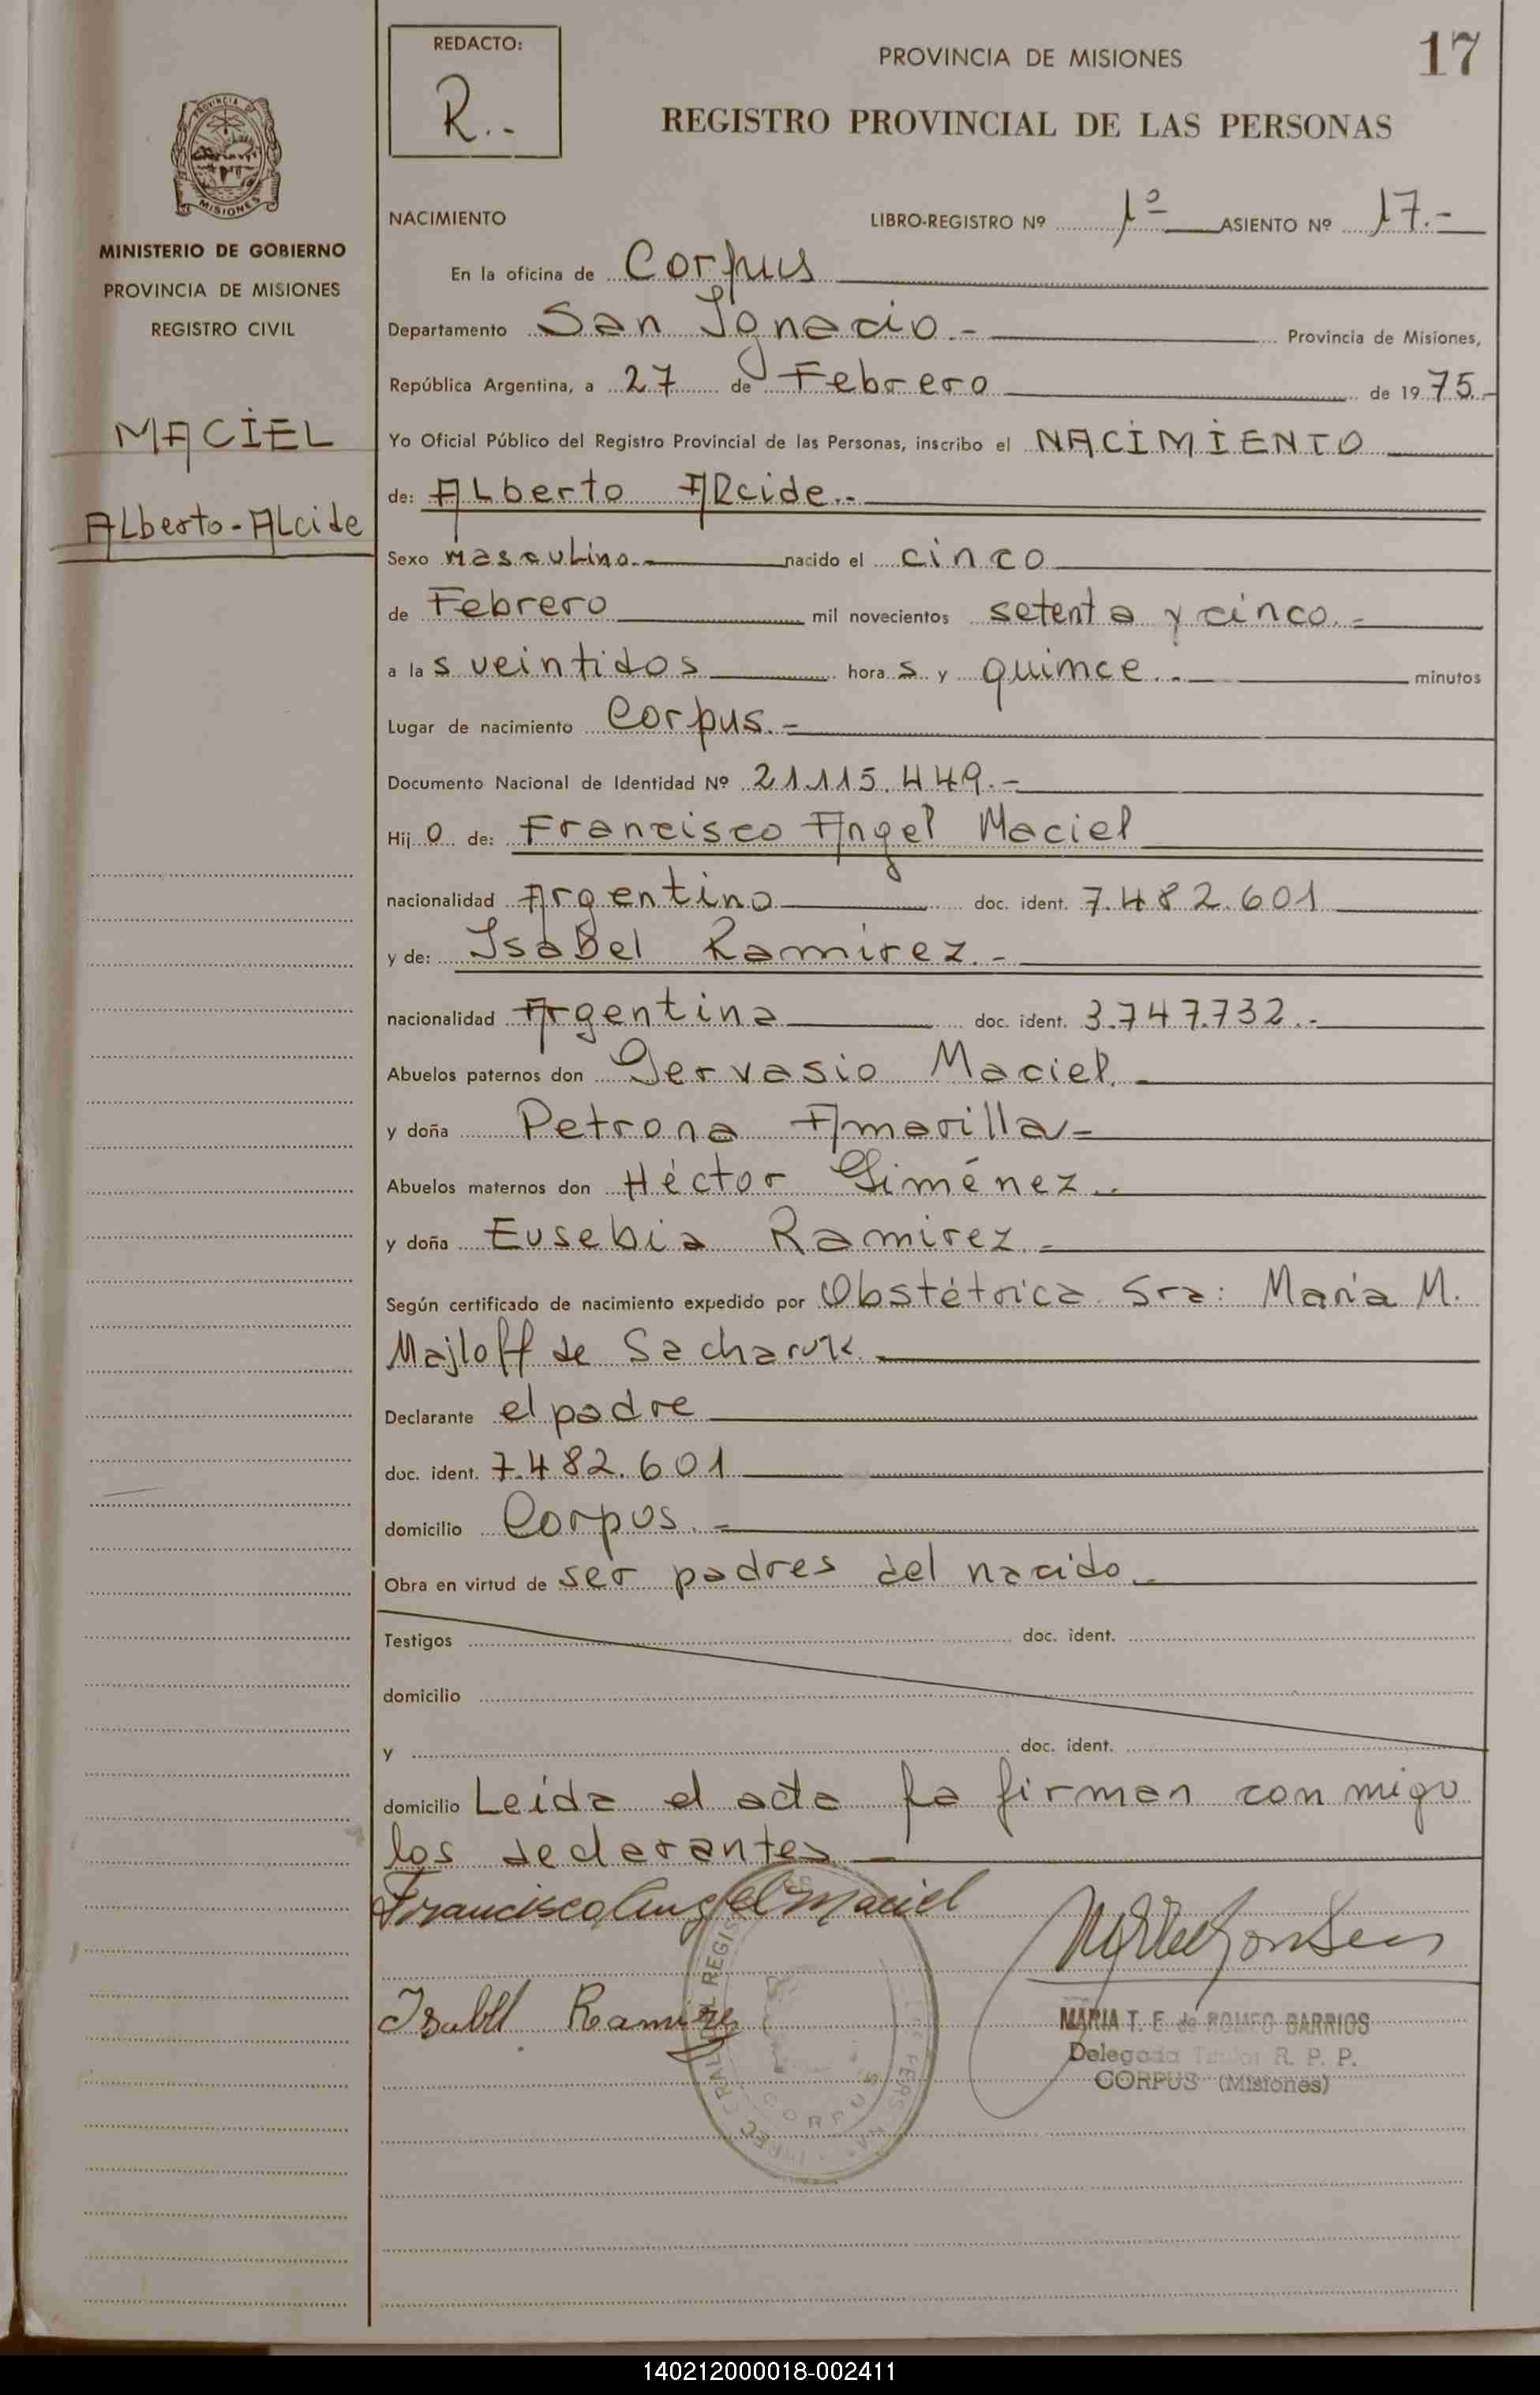 REDACTO:
R..-
PROVINCIA DE MISIONES
17
REGISTRO PROVINCIAL DE LAS PERSONAS
MISIONES
MINISTERIO DE GOBIERNO
PROVINCIA DE MISIONES
REGISTRO CIVIL
MACIEL
Alberto-Alcide
NACIMIENTO LIBRO-REGISTRO Nº 1º ASIENTO Nº 17.-
En la oficina de Corpus
Departamento San Ignacio.- Provincia de Misiones,
República Argentina, a 27 de Febrero de 1975.-
Yo Oficial Público del Registro Provincial de las Personas, inscribo el NACIMIENTO
de: Alberto Alcide.-
Sexo masculino.- nacido el cinco
de Febrero mil novecientos setenta y cinco.-
a las veintidos horas y quince.- minutos
Lugar de nacimiento Corpus.-
Documento Nacional de Identidad Nº 21.115.449.-
Hijo de: Francisco Angel Maciel
nacionalidad Argentino doc. ident. 7.482.601
y de: Isabel Ramirez.-
nacionalidad Argentina doc. ident. 3.747.732.-
Abuelos paternos don Gervasio Maciel.-
y doña Petrona Amarilla-
Abuelos maternos don Héctor Giménez.-
y doña Eusebia Ramirez.-
Según certificado de nacimiento expedido por Obstétrica Sra: Maria M.
Majloff de Sacharuk
Declarante el padre
doc. ident. 7.482.601
domicilio Corpus.-
Obra en virtud de ser padres del nacido.-
Testigos doc. ident.
domicilio
y doc. ident.
domicilio Leida el acta la firman con migo
los declarantes
Francisco Angel Maciel
Isabel Ramirez
MARIA T. F. de ROMEO BARRIOS
Delegada Titular R. P. P.
CORPUS (Misiones)
140212000018-002411